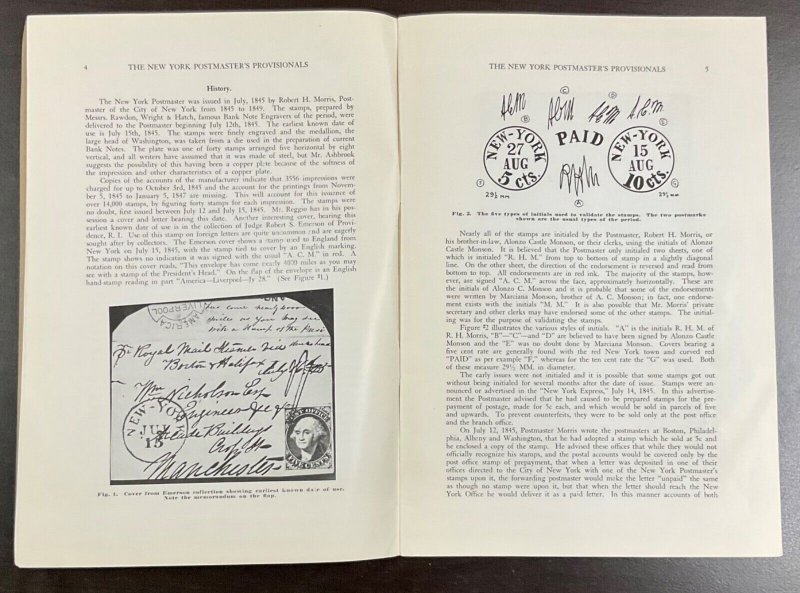 4
THE NEW YORK POSTMASTER'S PROVISIONALS
History.
The New York Postmaster was issued in July, 1845 by Robert H. Morris, Post-
master of the City of New York from 1845 to 1849. The stamps, prepared by
Messrs. Rawdon, Wright & Hatch, famous Bank Note Engravers of the period, were
delivered to the Postmaster beginning July 12th, 1845. The earliest known date of
use is July 15th, 1845. The stamps were finely engraved and the medallion, the
large head of Washington, was taken from a die used in the preparation of current
Bank Notes. The plate was one of forty stamps arranged five horizontal by eight
vertical, and all writers have assumed that it was made of steel, but Mr. Ashbrook
suggests the possibility of this having been a copper plate because of the softness of
the impression and other characteristics of a copper plate.
Copies of the accounts of the manufacturer indicate that 3556 impressions were
charged for up to October 3rd, 1845 and the account for the printings from Novem-
ber 5, 1845 to January 5, 1847 are missing. This will account for this issuance of
over 14,000 stamps, by figuring forty stamps for each impression. The stamps were
no doubt, first issued between July 12 and July 15, 1845. Mr. Reggio has in his pos-
session a cover and letter bearing this date. Another interesting cover, bearing this
earliest known date of use is in the collection of Judge Robert S. Emerson of Provi-
dence, R. I. Use of this stamp on foreign letters are quite uncommon and are eagerly
sought after by collectors. The Emerson cover shows a stamp used to England from
New York on July 15, 1845, with the stamp tied to cover by an English marking.
The stamp shows no indication it was signed with the usual "A. C. M." in red. A
notation on this cover reads, "This envelope has come nearly 4000 miles as you may
see with a stamp of the President's Head." On the flap of the envelope is an English
hand-stamp reading in part "America—Liverpool—Jy 28." (See Figure #1.)
AMERICA
LIVERPOOL
has come nearly 4000
miles as you may see
with a stamp of the Pres
Pr Royal Mail Steamer via
Boston & Halifax
Wm Nicholson Esq
Engineers
NEW-YORK
JUL
15
Buildings
POST OFFICE
FIVE CENTS
Manchester
Fig. 1. Cover from Emerson collection showing earliest known date of use.
Note the memorandum on the flap.
THE NEW YORK POSTMASTER'S PROVISIONALS
5
C
D
B
E
NEW-YORK
27
AUG
5 cts.
PAID
NEW-YORK
15
AUG
10 cts.
F
29½ MM
A
G
29½ MM
Fig. 2. The five types of initials used to validate the stamps. The two postmarks
shown are the usual types of the period.
Nearly all of the stamps are initialed by the Postmaster, Robert H. Morris, or
his brother-in-law, Alonzo Castle Monson, or their clerks, using the initials of Alonzo
Castle Monson. It is believed that the Postmaster only initialed two sheets, one of
which is initialed "R. H. M." from top to bottom of stamp in a slightly diagonal
line. On the other sheet, the direction of the endorsement is reversed and read from
bottom to top. All endorsements are in red ink. The majority of the stamps, how-
ever, are signed "A. C. M." across the face, approximately horizontally. These are
the initials of Alonzo C. Monson and it is probable that some of the endorsements
were written by Marciana Monson, brother of A. C. Monson; in fact, one endorse-
ment exists with the initials "M. M." It is also possible that Mr. Morris' private
secretary and other clerks may have endorsed some of the other stamps. The initial-
ing was for the purpose of validating the stamps.
Figure #2 illustrates the various styles of initials. "A" is the initials R. H. M. of
R. H. Morris, "B"—"C"—and "D" are believed to have been signed by Alonzo Castle
Monson and the "E" was no doubt done by Marciana Monson. Covers bearing a
five cent rate are generally found with the red New York town and curved red
"PAID" as per example "F", whereas for the ten cent rate the "G" was used. Both
of these measure 29½ MM. in diameter.
The early issues were not initialed and it is possible that some stamps got out
without being initialed for several months after the date of issue. Stamps were an-
nounced or advertised in the "New York Express," July 14, 1845. In this advertise-
ment the Postmaster advised that he had caused to be prepared stamps for the pre-
payment of postage, made for 5c each, and which would be sold in parcels of five
and upwards. To prevent counterfeits, they were to be sold only at the post office
and the branch office.
On July 12, 1845, Postmaster Morris wrote the postmasters at Boston, Philadel-
phia, Albany and Washington, that he had adopted a stamp which he sold at 5c and
enclosed a copy of the stamp. He advised these offices that while they would not
officially recognize his stamps, and the postal accounts would be covered only by the
post office stamp of prepayment, that when a letter was deposited in one of their
offices directed to the City of New York with one of the New York Postmaster's
stamps upon it, the forwarding postmaster would make the letter "unpaid" the same
as though no stamp were upon it, but that when the letter should reach the New
York Office he would deliver it as a paid letter. In this manner accounts of both